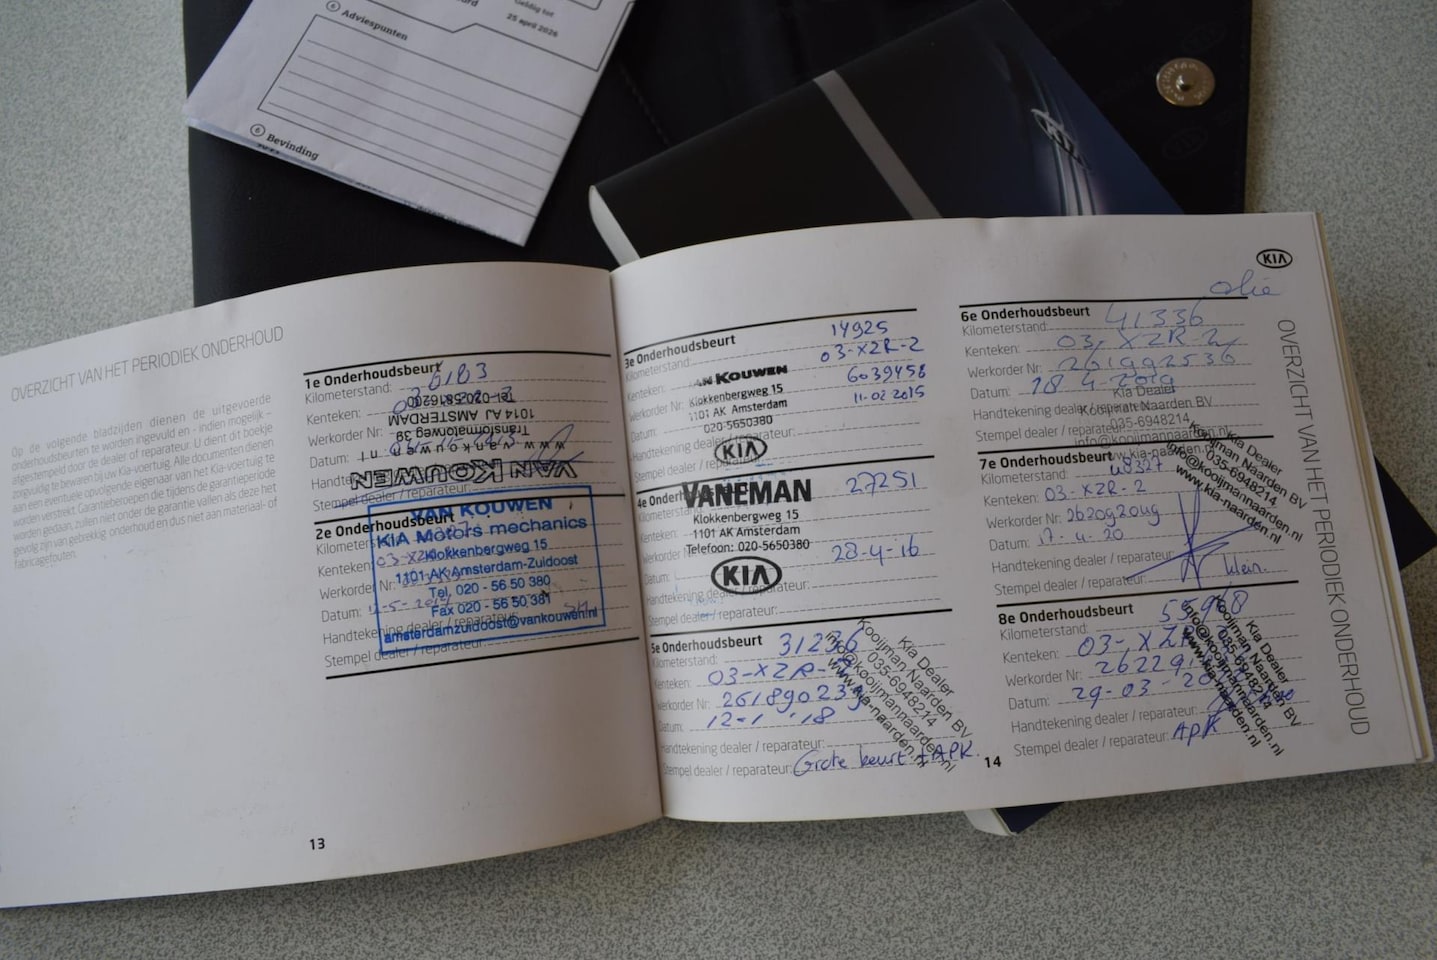 6 Adviespunten
Geldig tot
25 april 2026
6 Bevinding
KIA
OVERZICHT VAN HET PERIODIEK ONDERHOUD
Op de volgende bladzijden dienen de uitgevoerde
onderhoudsbeurten te worden ingevuld en - indien mogelijk -
afgestempeld door de dealer of reparateur. U dient dit boekje
zorgvuldig te bewaren bij uw Kia-voertuig. Alle documenten dienen
aan een eventuele opvolgende eigenaar van het Kia-voertuig te
worden verstrekt. Garantieberoepen die tijdens de garantieperiode
worden gedaan, zullen niet onder de garantie vallen als deze het
gevolg zijn van gebrekkig onderhoud en dus niet aan materiaal- of
fabricagefouten.
1e Onderhoudsbeurt
Kilometerstand:
Kenteken:
Werkorder Nr:
Datum:
Stempel dealer / reparateur:
VAN KOUWEN
www.vankouwen.nl
Transformatorweg 39
1014 AJ AMSTERDAM
2e Onderhoudsbeurt
Kenteken: 03-XZR-2
Werkorder Nr:
Datum:
Handtekening dealer / reparateur:
Stempel dealer / reparateur:
VAN KOUWEN
KIA Motors mechanics
Klokkenbergweg 15
1101 AK Amsterdam-Zuidoost
Tel. 020 - 56 50 380
Fax 020 - 56 50 381
amsterdamzuidoost@vankouwen.nl
13
3e Onderhoudsbeurt
Kilometerstand: 14925
Kenteken: 03-XZR-2
Werkorder Nr: 6039458
Datum: 11-02-2015
Handtekening dealer / reparateur:
Stempel dealer / reparateur:
VAN KOUWEN
Klokkenbergweg 15
1101 AK Amsterdam
020-5650380
KIA
4e Onderhoudsbeurt
27251
28-4-16
Datum:
Handtekening dealer / reparateur:
Stempel dealer / reparateur:
VANEMAN
Klokkenbergweg 15
1101 AK Amsterdam
Telefoon: 020-5650380
KIA
5e Onderhoudsbeurt
Kilometerstand: 31236
Kenteken: 03-XZR-2
Werkorder Nr: 261890239
Datum: 12-1-'18
Handtekening dealer / reparateur:
Stempel dealer / reparateur: Grote beurt + APK.
Kia Dealer
Kooijman Naarden BV
035-6948214
info@kooijmannaarden.nl
www.kia-naarden.nl
KIA
olie
6e Onderhoudsbeurt
Kilometerstand: 41336
Kenteken: 03-XZR-2
Werkorder Nr: 261992536
Datum: 18 4-2019
Handtekening dealer / reparateur:
Stempel dealer / reparateur:
Kia Dealer
Kooijman Naarden BV
035-6948214
info@kooijmannaarden.nl
www.kia-naarden.nl
7e Onderhoudsbeurt
Kilometerstand: 48327
Kenteken: 03-XZR-2
Werkorder Nr: 262092049
Datum: 17-4-20
Handtekening dealer / reparateur:
Stempel dealer / reparateur: klein.
Kia Dealer
Kooijman Naarden BV
035-6948214
info@kooijmannaarden.nl
www.kia-naarden.nl
8e Onderhoudsbeurt
Kilometerstand: 55968
Kenteken: 03-XZR
Werkorder Nr: 26229
Datum: 29-03-
Handtekening dealer / reparateur:
Stempel dealer / reparateur: APK
Kia Dealer
Kooijman Naarden BV
035-6948214
info@kooijmannaarden.nl
www.kia-naarden.nl
14
OVERZICHT VAN HET PERIODIEK ONDERHOUD